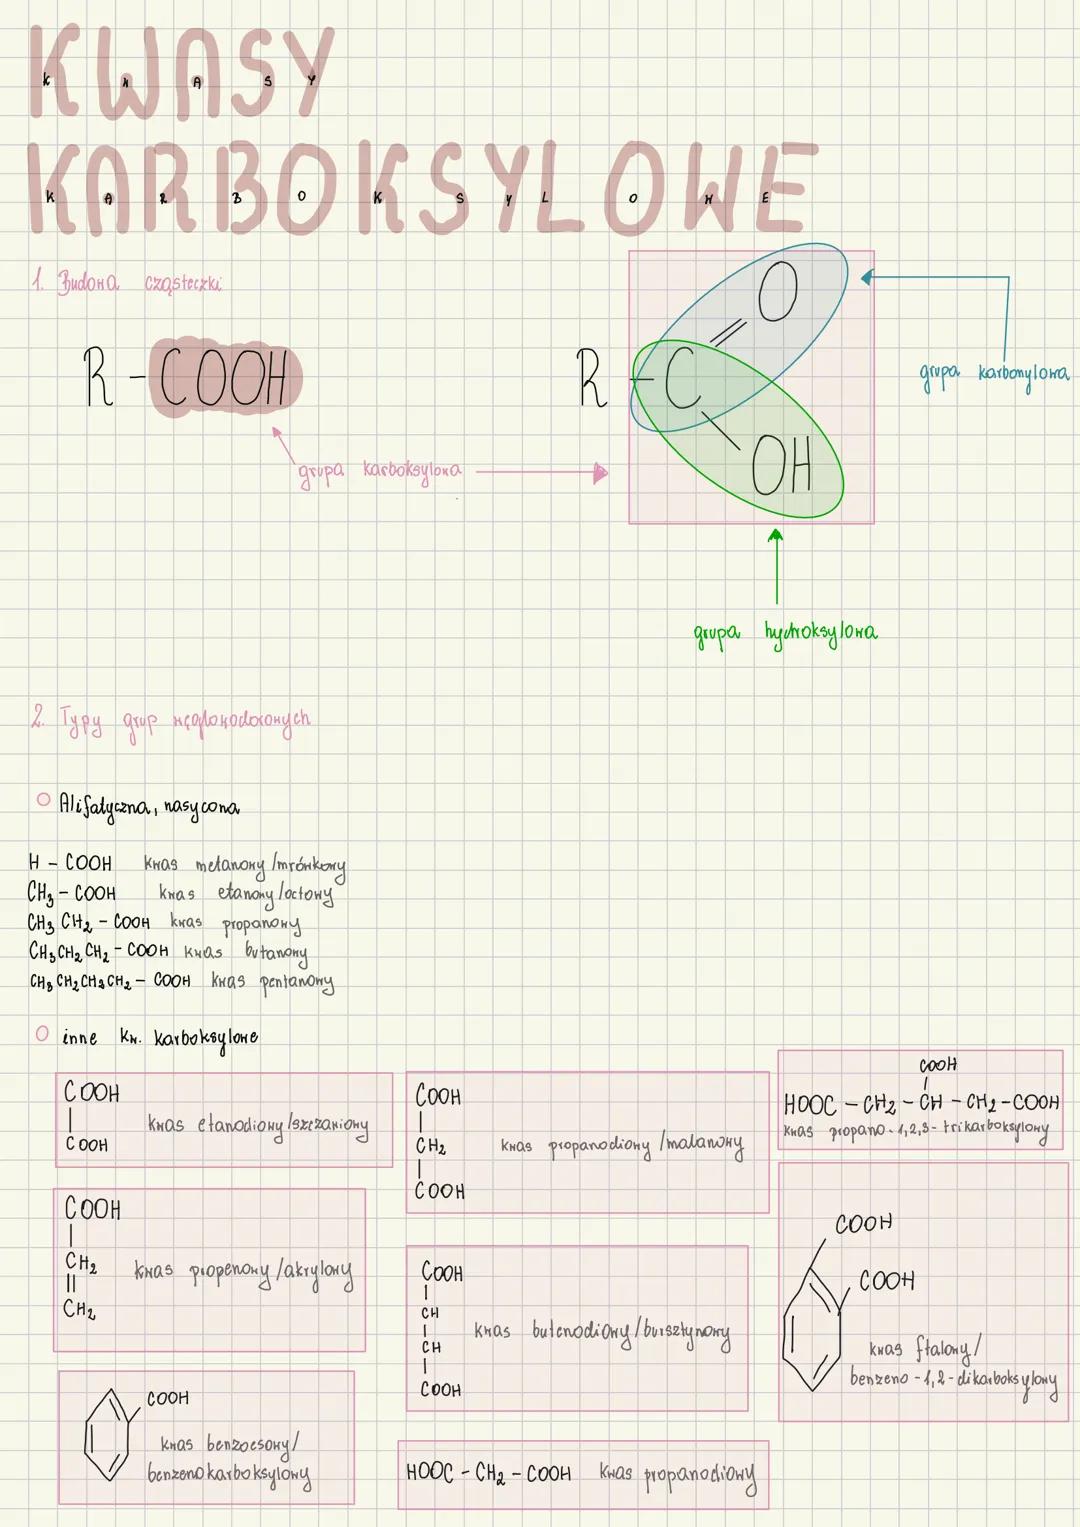 KWASY
K W A S Y
KARBOKSYLOWE
K A R B O K S Y L O W E
1. Budowa cząsteczki
R - COOH
grupa karboksylowa
R - C
O
OH
grupa karbonylowa
grupa hydroksylowa
2. Typy grup węglowodorowych
Alifatyczna, nasycona
H - COOH kwas metanowy /mrówkowy
CH3 - COOH kwas etanowy /octowy
CH3 CH2 - COOH kwas propanowy
CH3 CH2 CH2 - COOH kwas butanowy
CH3 CH2 CH2 CH2 - COOH kwas pentanowy
inne kw. karboksylowe
COOH
|
COOH
kwas etanodiowy /szczawiowy
COOH
|
CH2
||
CH2
kwas propenowy /akrylowy
COOH
kwas benzoesowy/
benzenokarboksylowy
COOH
|
CH2
|
COOH
kwas propanodiowy /malonowy
COOH
|
CH
|
CH
|
COOH
kwas butenodiowy/bursztynowy
HOOC - CH2 - COOH kwas propanodiowy
COOH
|
HOOC - CH2 - CH - CH2 - COOH
kwas propano-1,2,3-trikarboksylowy
COOH
COOH
kwas ftalowy/
benzeno-1,2-dikarboksylowy